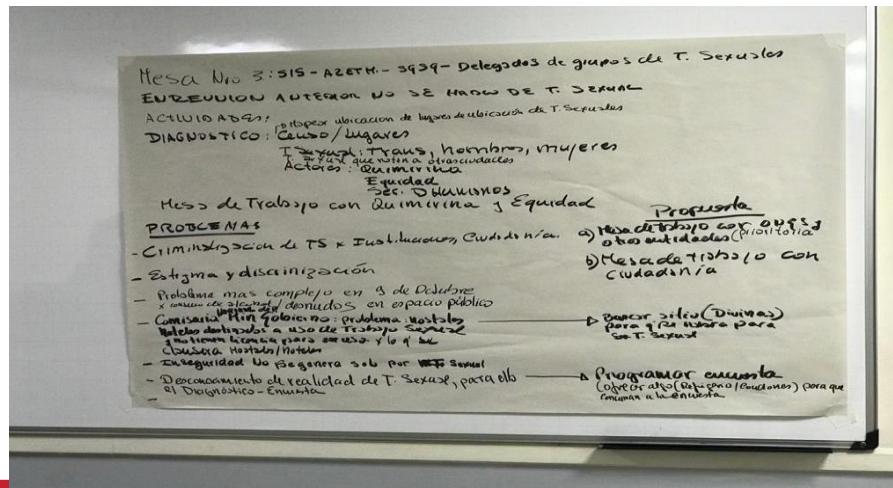 Mesa Nro 3: SIS - AZETH - 3939 - Delegados de grupos de T. Sexuales
EN REUNION ANTERIOR NO SE HABLO DE T. SEXUAL
ACTIVIDADES: Mapear ubicacion de lugares de ubicación de T. Sexuales
DIAGNOSTICO: Censo/Lugares
T Sexual: Trans, hombres, mujeres
T. Sexual que rotan a otras ciudades
Actores: Quimirina
Equidad
Ser. D Humanos
Mesa de Trabajo con Quimirina y Equidad
PROBLEMAS
- Criminalización de TS x Instituciones, Ciudadanía.
- Estigma y discrinización
- Problema mas complejo en 9 de Octubre
x consumo de alcohol/desnudos en espacio público
- Comisaría Min Gobierno: problema: Hostales
Hoteles destinados a uso de Trabajo Sexual
y no tienen licencia para ese uso y lo q' se
clausura Hostales/Hoteles
- Inseguridad No se genera solo por T. Sexual
- Desconocimiento de realidad de T. Sexual, para ello
el Diagnóstico - Encuesta
-
Propuesta
a) Mesa de trabajo con ONGS y
otras entidades (prioritaria
b) Mesa de trabajo con
ciudadanía
Buscar sitio (Divinas)
para q' se para
T. Sexual
Programar encuesta
(ofrecer algo (Refrigerio/Condones) para que
concurran a la encuesta